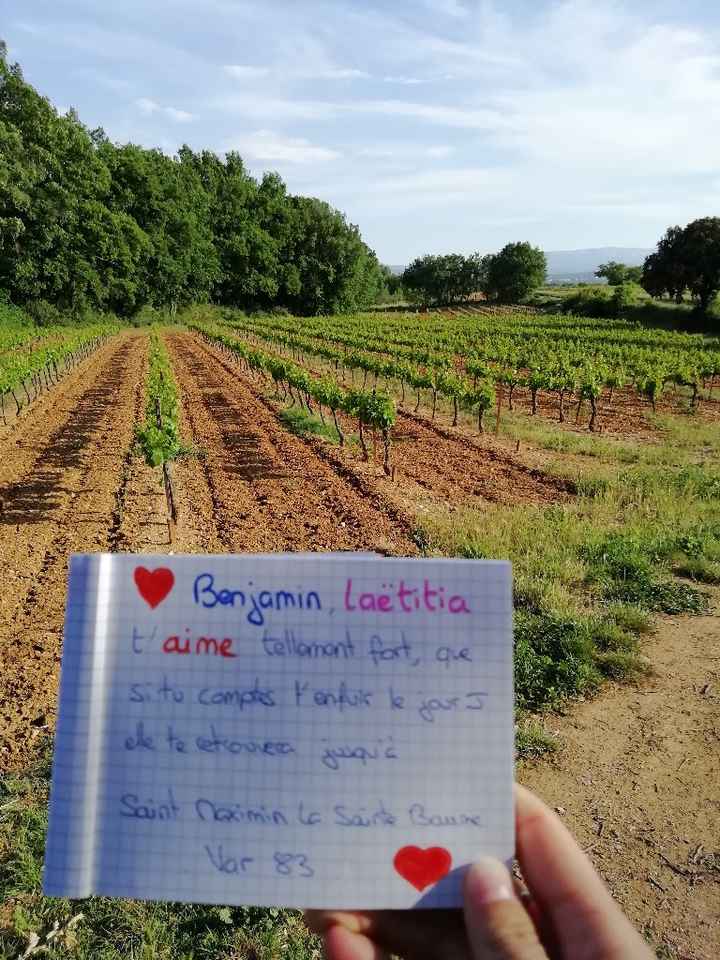 Benjamin, Laëtitia
t'aime tellement fort, que
si tu comptes t'enfuir le jour J
elle te retrouvera jusqu'à
Saint Maximin La Sainte Baume
Var 83